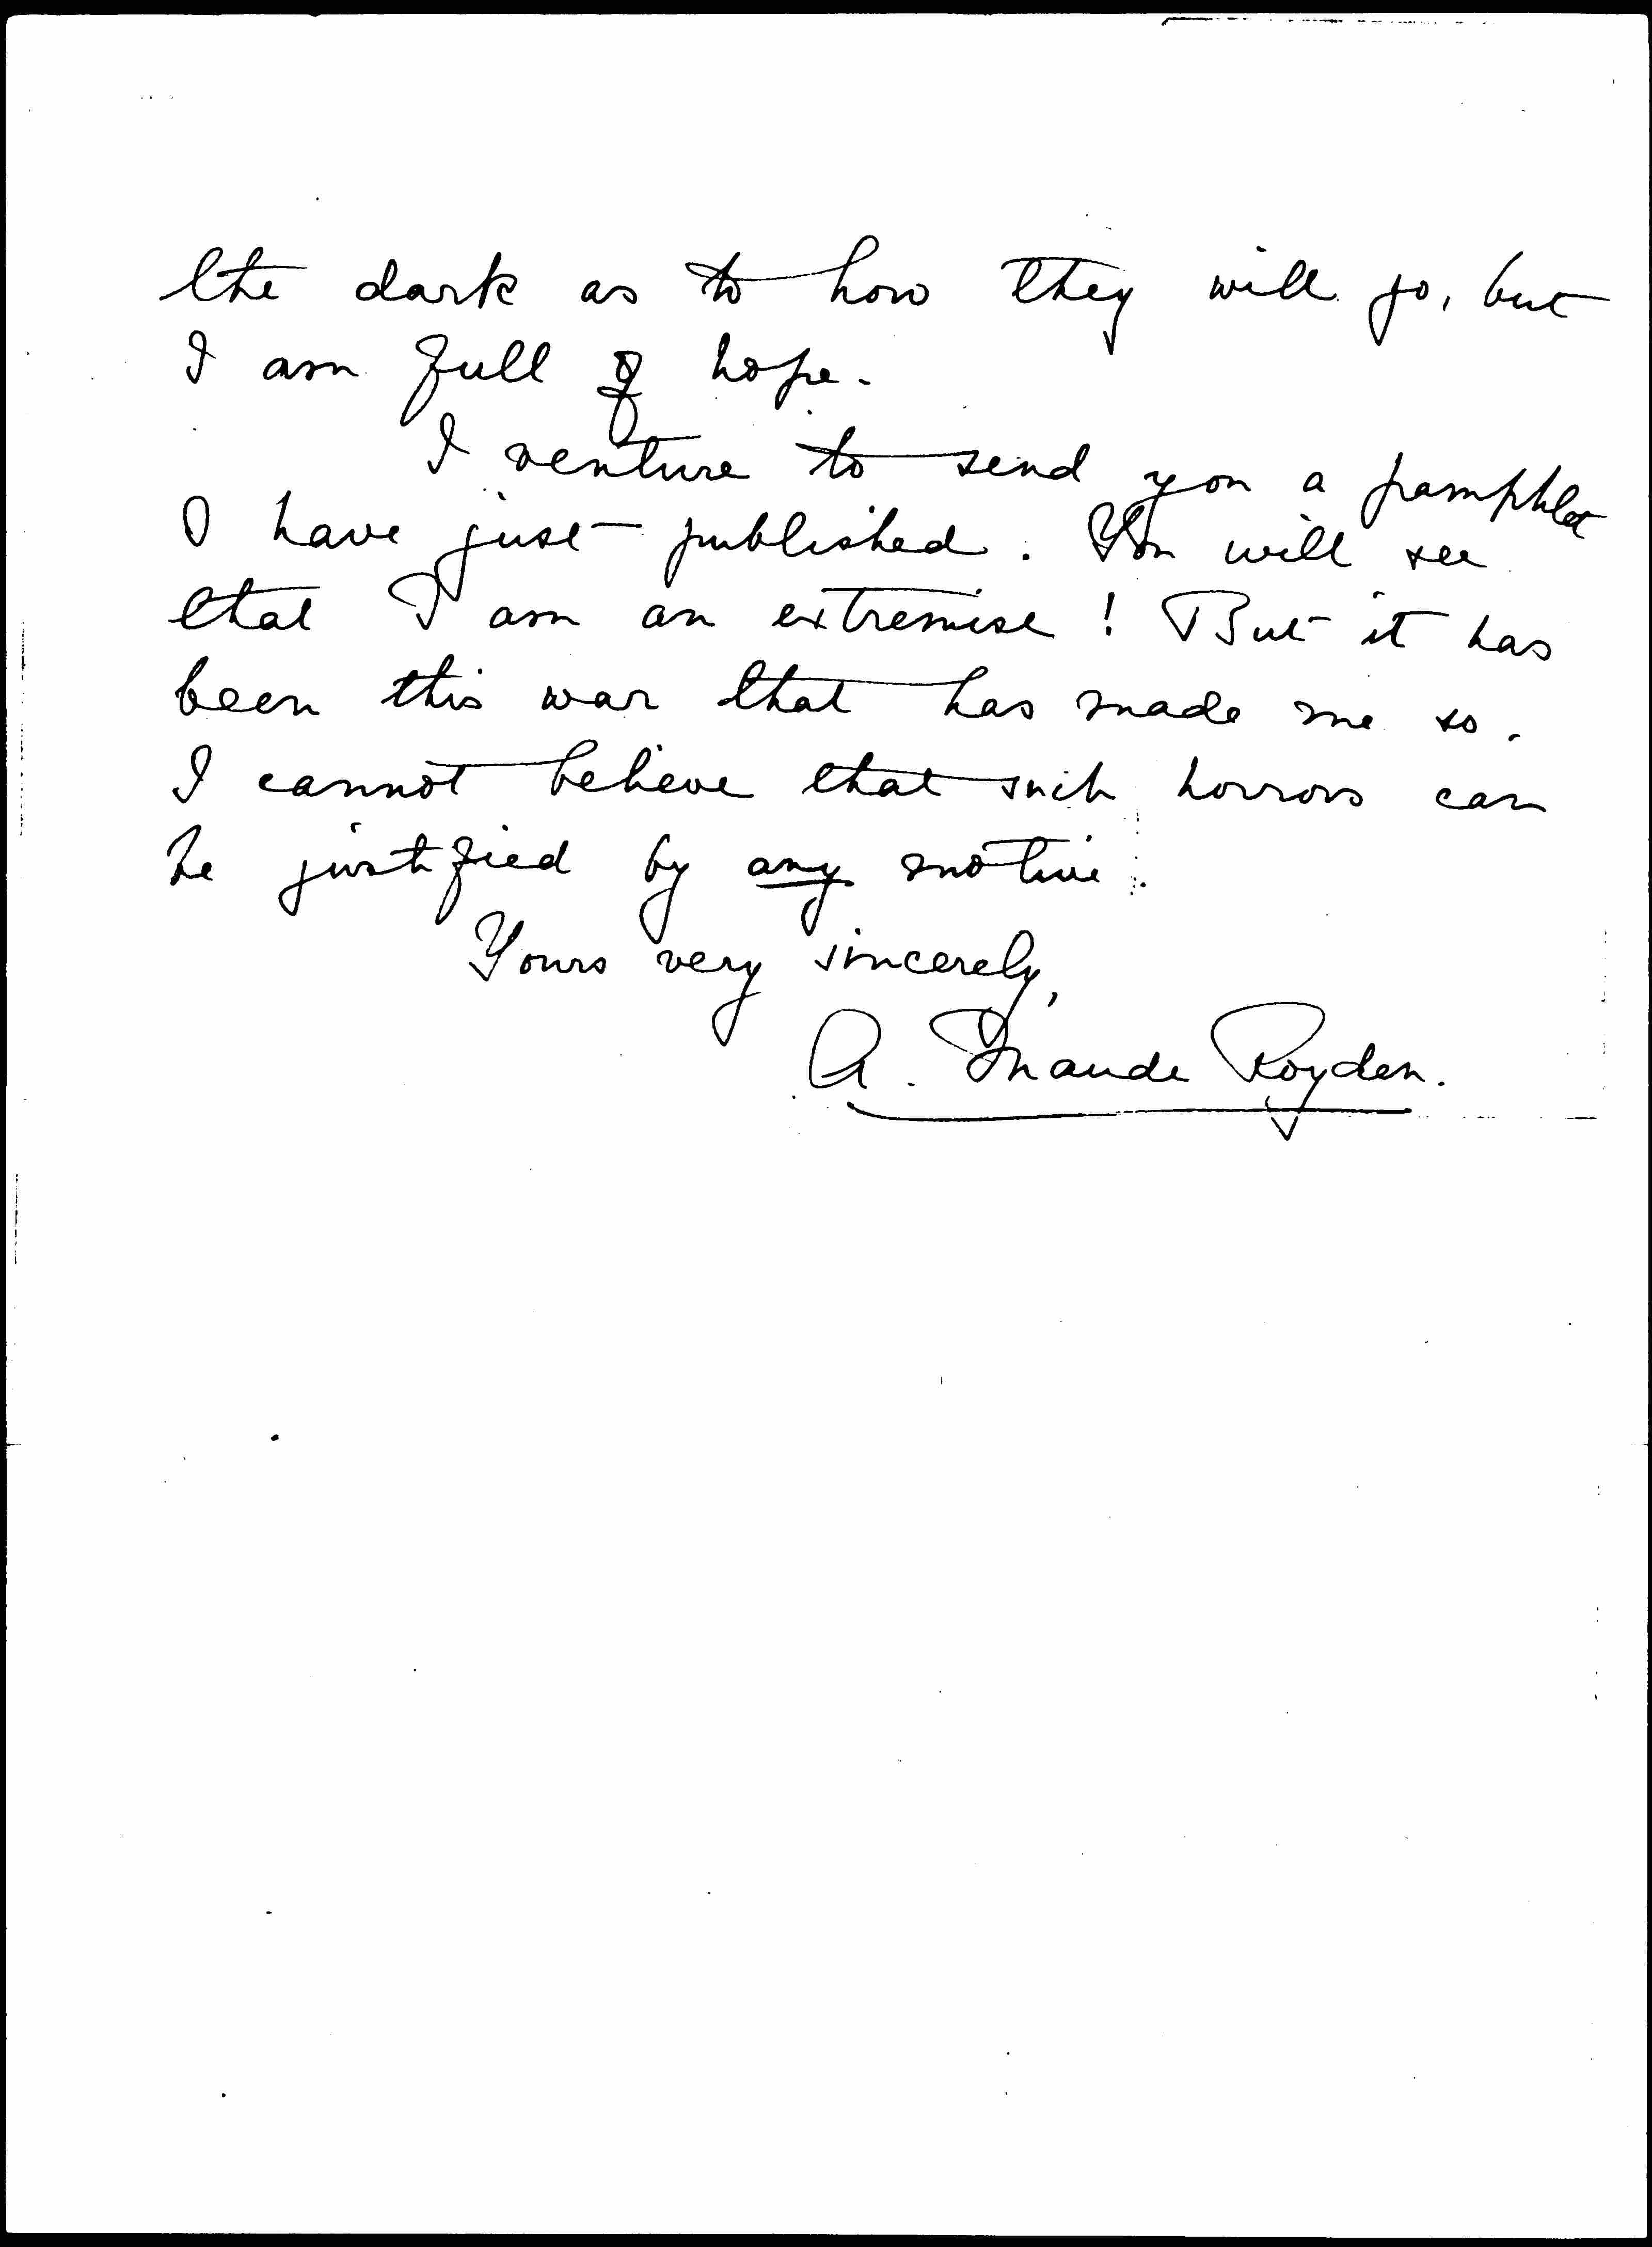 the dark as to how they will go, but
I am full of hope.
I venture to send you a pamphlet
I have just published. You will see
that I am an extremist! But it has
been this war that has made me so.
I cannot believe that such horrors can
be justified by any motive.
Yours very sincerely,
A. Maude Royden.